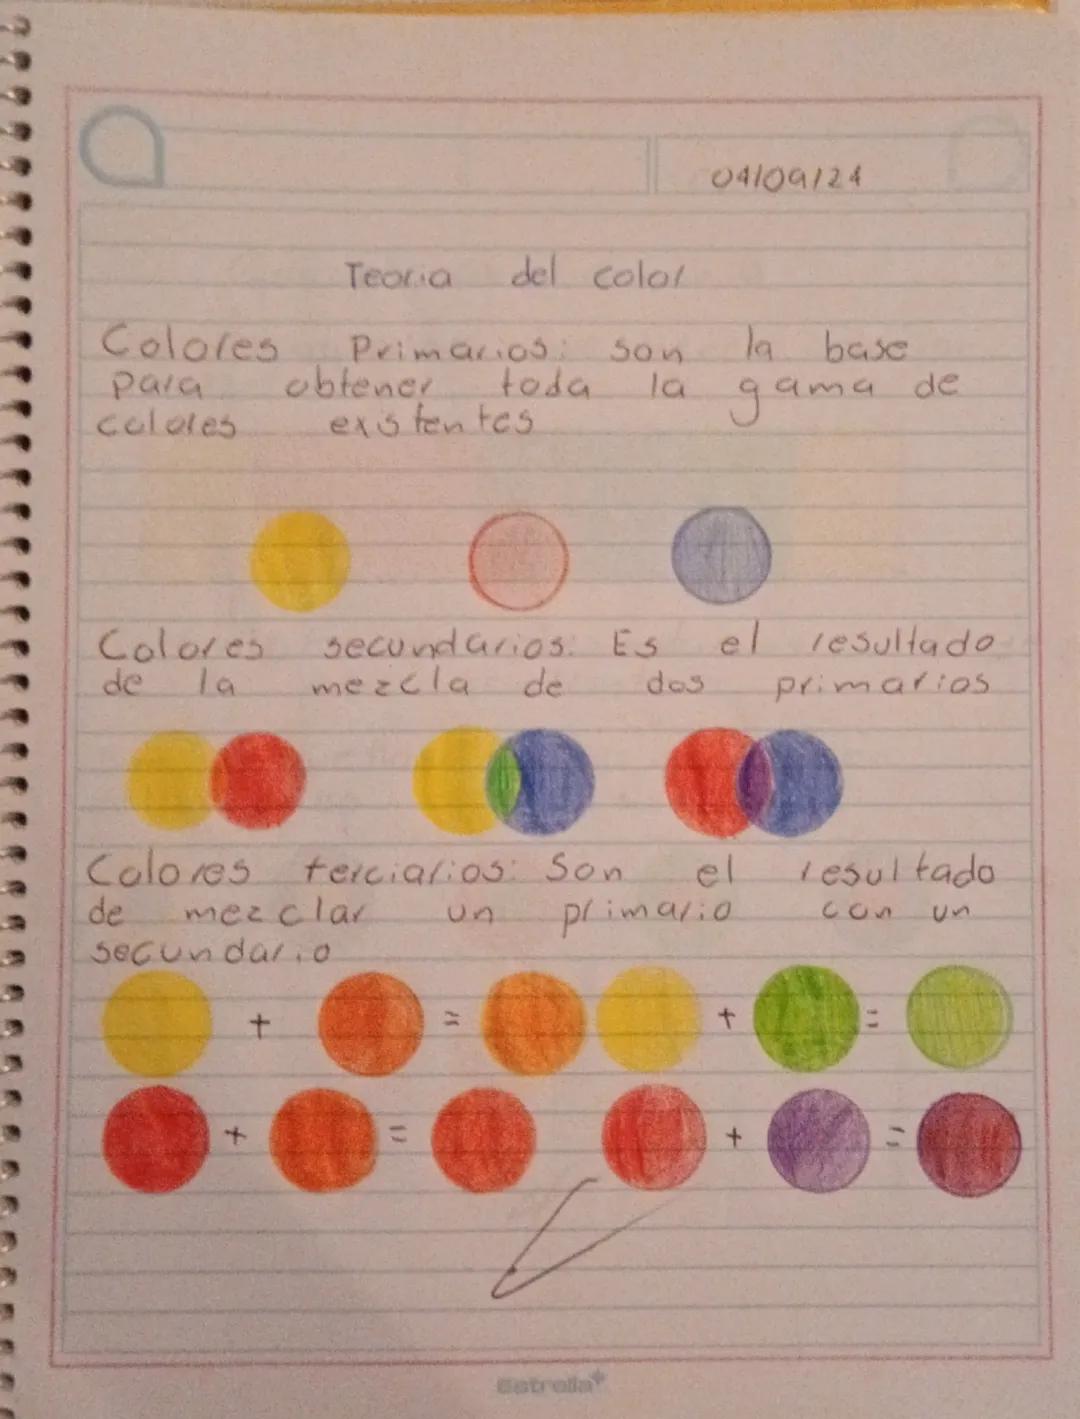 04/09/24
Teoria del color
Colores Primarios: son la base
para obtener toda la gama de
colores existentes
Colores secundarios: Es el resultado
de la mezcla de dos primarios
Colores terciarios: Son el resultado
de mezclar un primario con un
secundario
+ = + =
+ = + =
Estrella